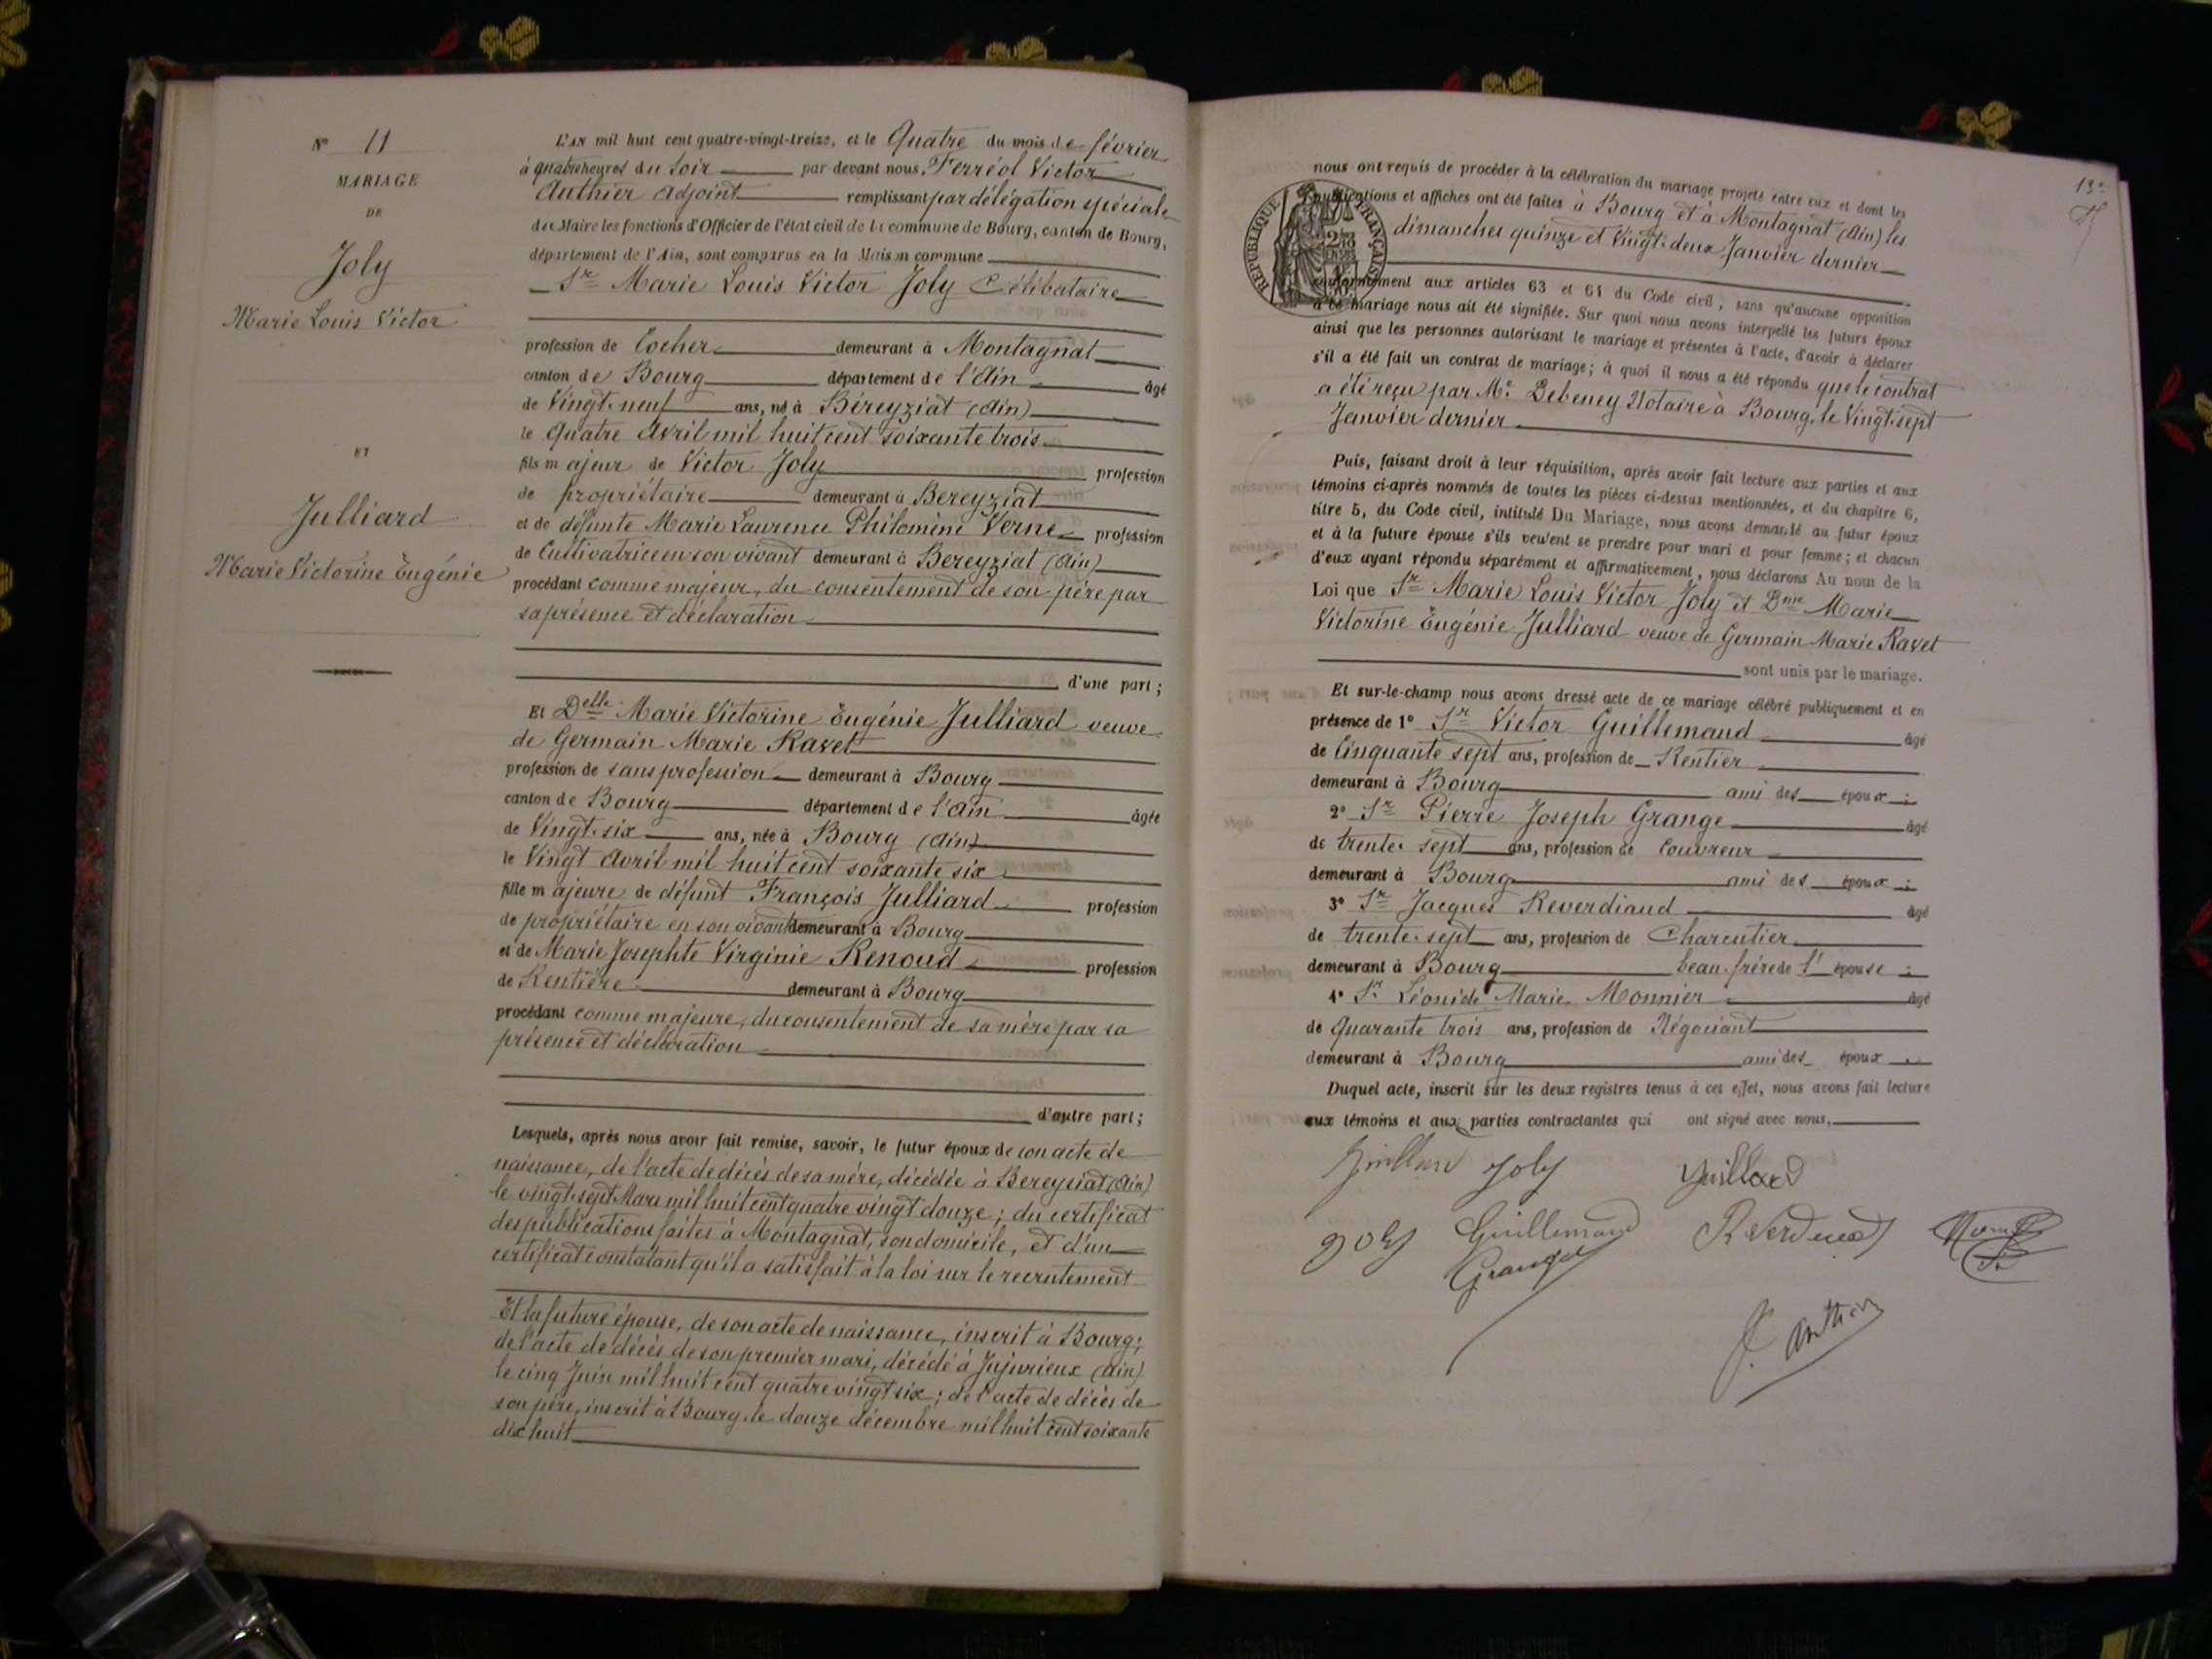 N° 11
MARIAGE
DE
Joly
Marie Louis Victor
ET
Julliard
Marie Victorine Eugénie
L'AN mil huit cent quatre-vingt-treize, et le Quatre du mois de février
à quatre heures du Soir par-devant nous, Ferréol Victor
Authier Adjoint remplissant par délégation spéciale
du Maire les fonctions d'Officier de l'état civil de la commune de Bourg, canton de Bourg,
département de l'Ain, sont comparus en la Maison commune
Sr Marie Louis Victor Joly Célibataire
profession de Cocher demeurant à Montagnat
canton de Bourg département de l'Ain âgé
de Vingt-neuf ans, né à Béreyziat (Ain)
le Quatre Avril mil huit cent soixante trois
fils majeur de Victor Joly profession
de propriétaire demeurant à Bereyziat
et de défunte Marie Laurence Philomène Verne profession
de Cultivatrice en son vivant demeurant à Bereyziat (Ain)
procédant comme majeur, du consentement de son père par
sa présence et déclaration
d'une part ;
Et Delle Marie Victorine Eugénie Julliard veuve
de Germain Marie Ravet
profession de sans profession demeurant à Bourg
canton de Bourg département de l'Ain âgée
de Vingt-six ans, née à Bourg (Ain)
le Vingt Avril mil huit cent soixante six
fille majeure de défunt François Julliard profession
de propriétaire en son vivant demeurant à Bourg
et de Marie Josephte Virginie Renoud profession
de Rentière demeurant à Bourg
procédant comme majeure, du consentement de sa mère par sa
présence et déclaration
d'autre part ;
Lesquels, après nous avoir fait remise, savoir, le futur époux de son acte de
naissance, de l'acte de décès de sa mère, décédée à Bereysiat (Ain)
le vingt-sept Mars mil huit cent quatre vingt douze ; du certificat
des publications faites à Montagnat, son domicile, et d'un
certificat constatant qu'il a satisfait à la loi sur le recrutement
Et la future épouse, de son acte de naissance, inscrit à Bourg ;
de l'acte de décès de son premier mari, décédé à Jujurieux (Ain)
le cinq Juin mil huit cent quatre vingt six ; de l'acte de décès de
son père, inscrit à Bourg, le douze décembre mil huit cent soixante
dix huit
13e
REPUBLIQUE FRANÇAISE
nous ont requis de procéder à la célébration du mariage projeté entre eux et dont les
publications et affiches ont été faites à Bourg et à Montagnat (Ain) les
dimanches quinze et Vingt-deux Janvier dernier
conformément aux articles 63 et 64 du Code civil, sans qu'aucune opposition
à ce mariage nous ait été signifiée. Sur quoi nous avons interpellé les futurs époux
ainsi que les personnes autorisant le mariage et présentes à l'acte, d'avoir à déclarer
s'il a été fait un contrat de mariage ; à quoi il nous a été répondu que le contrat
a été reçu par Me Debeney Notaire à Bourg, le Vingt-sept
Janvier dernier
Puis, faisant droit à leur réquisition, après avoir fait lecture aux parties et aux
témoins ci-après nommés de toutes les pièces ci-dessus mentionnées, et du chapitre 6,
titre 5, du Code civil, intitulé Du Mariage, nous avons demandé au futur époux
et à la future épouse s'ils veulent se prendre pour mari et pour femme ; et chacun
d'eux ayant répondu séparément et affirmativement, nous déclarons Au nom de la
Loi que Sr Marie Louis Victor Joly et Dme Marie
Victorine Eugénie Julliard veuve de Germain Marie Ravet
sont unis par le mariage.
Et sur-le-champ nous avons dressé acte de ce mariage célébré publiquement et en
présence de 1° Sr Victor Guillemaud âgé
de Cinquante sept ans, profession de Rentier
demeurant à Bourg ami des époux ;
2° Sr Pierre Joseph Grange âgé
de trente-sept ans, profession de Couvreur
demeurant à Bourg ami des époux ;
3° Sr Jacques Reverdiaud âgé
de trente-sept ans, profession de Charcutier
demeurant à Bourg beau-frère de l'épouse ;
4° Sr Léonide Marie Monnier âgé
de Quarante trois ans, profession de Négociant
demeurant à Bourg ami des époux
Duquel acte, inscrit sur les deux registres tenus à cet effet, nous avons fait lecture
aux témoins et aux parties contractantes qui ont signé avec nous.
Joly
Joly Guillemaud
Grange